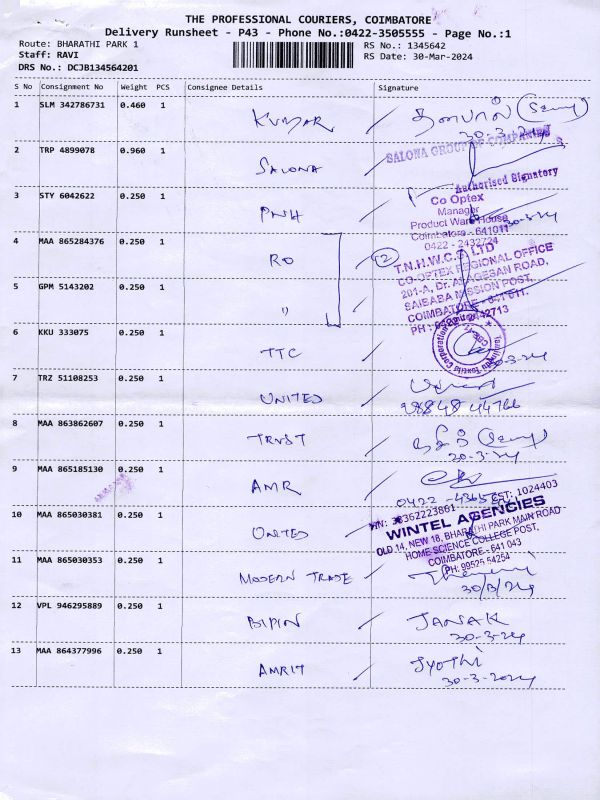 THE PROFESSIONAL COURIERS, COIMBATORE
Delivery Runsheet - P43 - Phone No.:0422-3505555 - Page No.:1
Route: BHARATHI PARK 1
RS No.: 1345642
Staff: RAVI
RS Date: 30-Mar-2024
DRS No.: DCJB134564201
S No Consignment No Weight PCS Consignee Details Signature
1 SLM 342786731 0.460 1 KUMAR
30-3-24
2 TRP 4899078 0.960 1 SALONA
SALONA GROUP OF COMPANIES
Authorised Signatory
3 STY 6042622 0.250 1 PNH
Co Optex
Manager
Product Ware House
Coimbatore - 641011
0422 - 2432724
30-3-24
4 MAA 865284376 0.250 1 RO
(2)
T.N.H.W.C.S LTD
CO-OPTEX REGIONAL OFFICE
201-A, Dr. ALAGESAN ROAD,
SAIBABA MISSION POST,
COIMBATORE - 641 011.
5 GPM 5143202 0.250 1 "
6 KKU 333075 0.250 1 TTC
7 TRZ 51108253 0.250 1 UNITED
8 MAA 863862607 0.250 1 TRUST
30-3-24
9 MAA 865185130 0.250 1 AMR
CST: 1024403
10 MAA 865030381 0.250 1 UNITED
WINTEL AGENCIES
OLD 14, NEW 18, BHARATHI PARK MAIN ROAD
HOME SCIENCE COLLEGE POST,
COIMBATORE - 641 043
PH: 99525 54254
11 MAA 865030353 0.250 1 MODERN TRADE
30/3/24
12 VPL 946295889 0.250 1 BIPIN JANAK
30-3-24
13 MAA 864377996 0.250 1 AMRIT Jyothi
30-3-2024